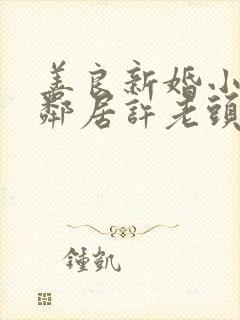 善良新婚小
鄰居許老頭
鍾凱